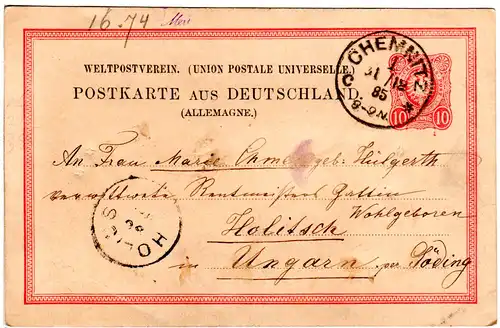 16.74
WELTPOSTVEREIN. (UNION POSTALE UNIVERSELLE.)
POSTKARTE AUS DEUTSCHLAND.
(ALLEMAGNE.)
CHEMNITZ
85
8-9N.
10 10
An Frau Marie Chmel geb: Hülgerth
verwittwete Rentmeisters Gattin
Wohlgeboren
Holitsch
in Ungarn per Göding
HOLICS